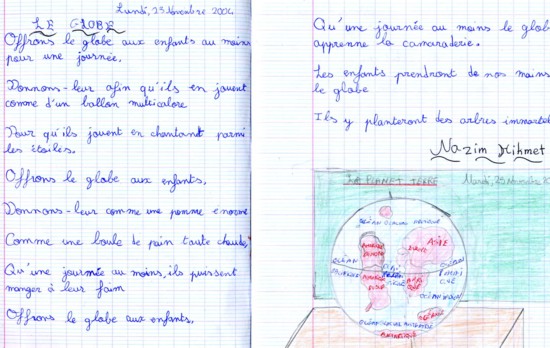 Lundi, 23 Novembre 2004
LE GLOBE
Offrons le globe aux enfants au moins
pour une journée.
Donnons-leur afin qu'ils en jouent
comme d'un ballon multicolore
Pour qu'ils jouent en chantant parmi
les étoiles.
Offrons le globe aux enfants,
Donnons-leur comme une pomme énorme
Comme une boule de pain toute chaude,
Qu'une journée au moins, ils puissent
manger à leur faim
Offrons le globe aux enfants,
Qu'une journée au moins le glob
apprenne la camaraderie.
Les enfants prendront de nos mains
le globe
Ils y planteront des arbres immortel
Nazim Hikmet
LA PLANET TERRE
Mardi, 25 Novembre
OCÉAN GLACIAL ARCTIQUE
ASIE
EUROPE
OCÉAN